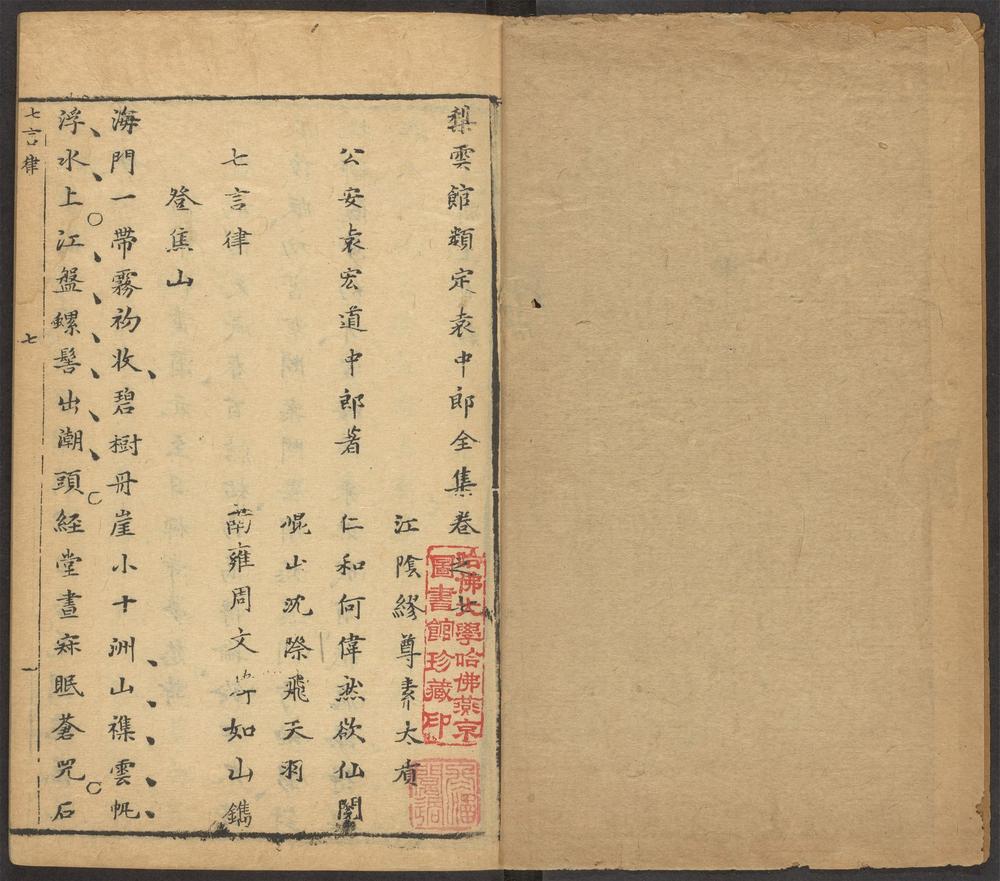 棃雲館類定袁中郎全集卷之七
江陰繆尊素大
公安袁宏道中郎著 仁和何偉然欲仙閱
崐山沈際飛天羽
七言律 南雍周文煒如山鐫
登焦山
海門一帶霧初收碧樹丹崖小十洲山襍雲帆
浮水上江盤螺髻出潮頭經堂晝寂眠蒼兕石
七言律 七 一
哈佛大學哈佛燕京
圖書館珍藏印